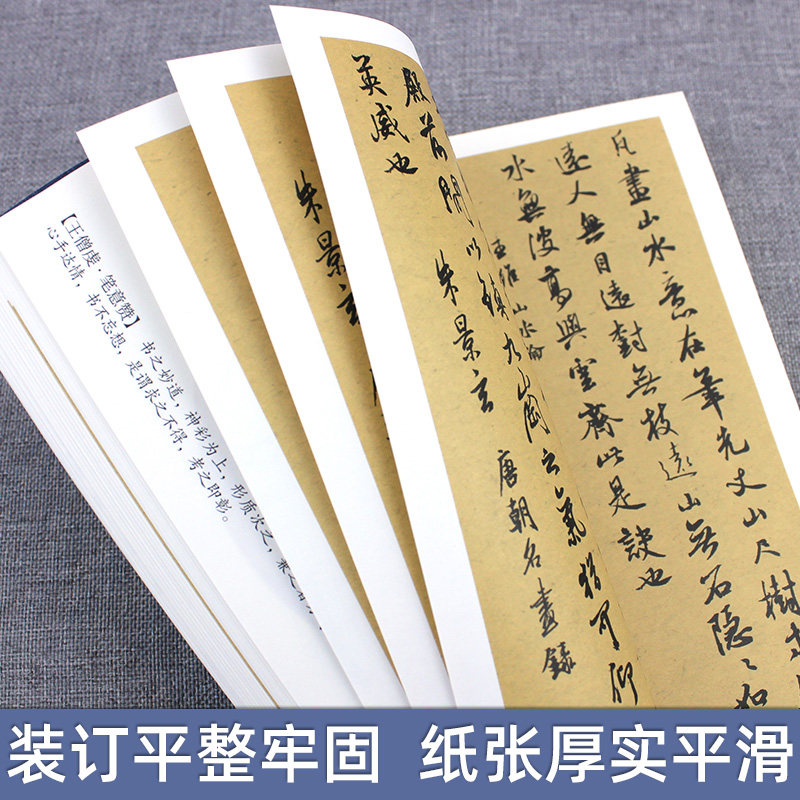 凡畫山水意在筆先丈山尺樹
遠人無目遠樹無枝遠山無石隱隱如
水無波高與雲齊此是訣也
王維山水論
殿前 以鎮九 之氣猶可仰
英威也 朱景玄 唐朝名畫錄
朱景玄
【王僧虔·笔意赞】书之妙道，神彩为上，形质次之，兼之者
心手达情，书不忘想，是谓求之不得，考之即彰。
装订平整牢固 纸张厚实平滑